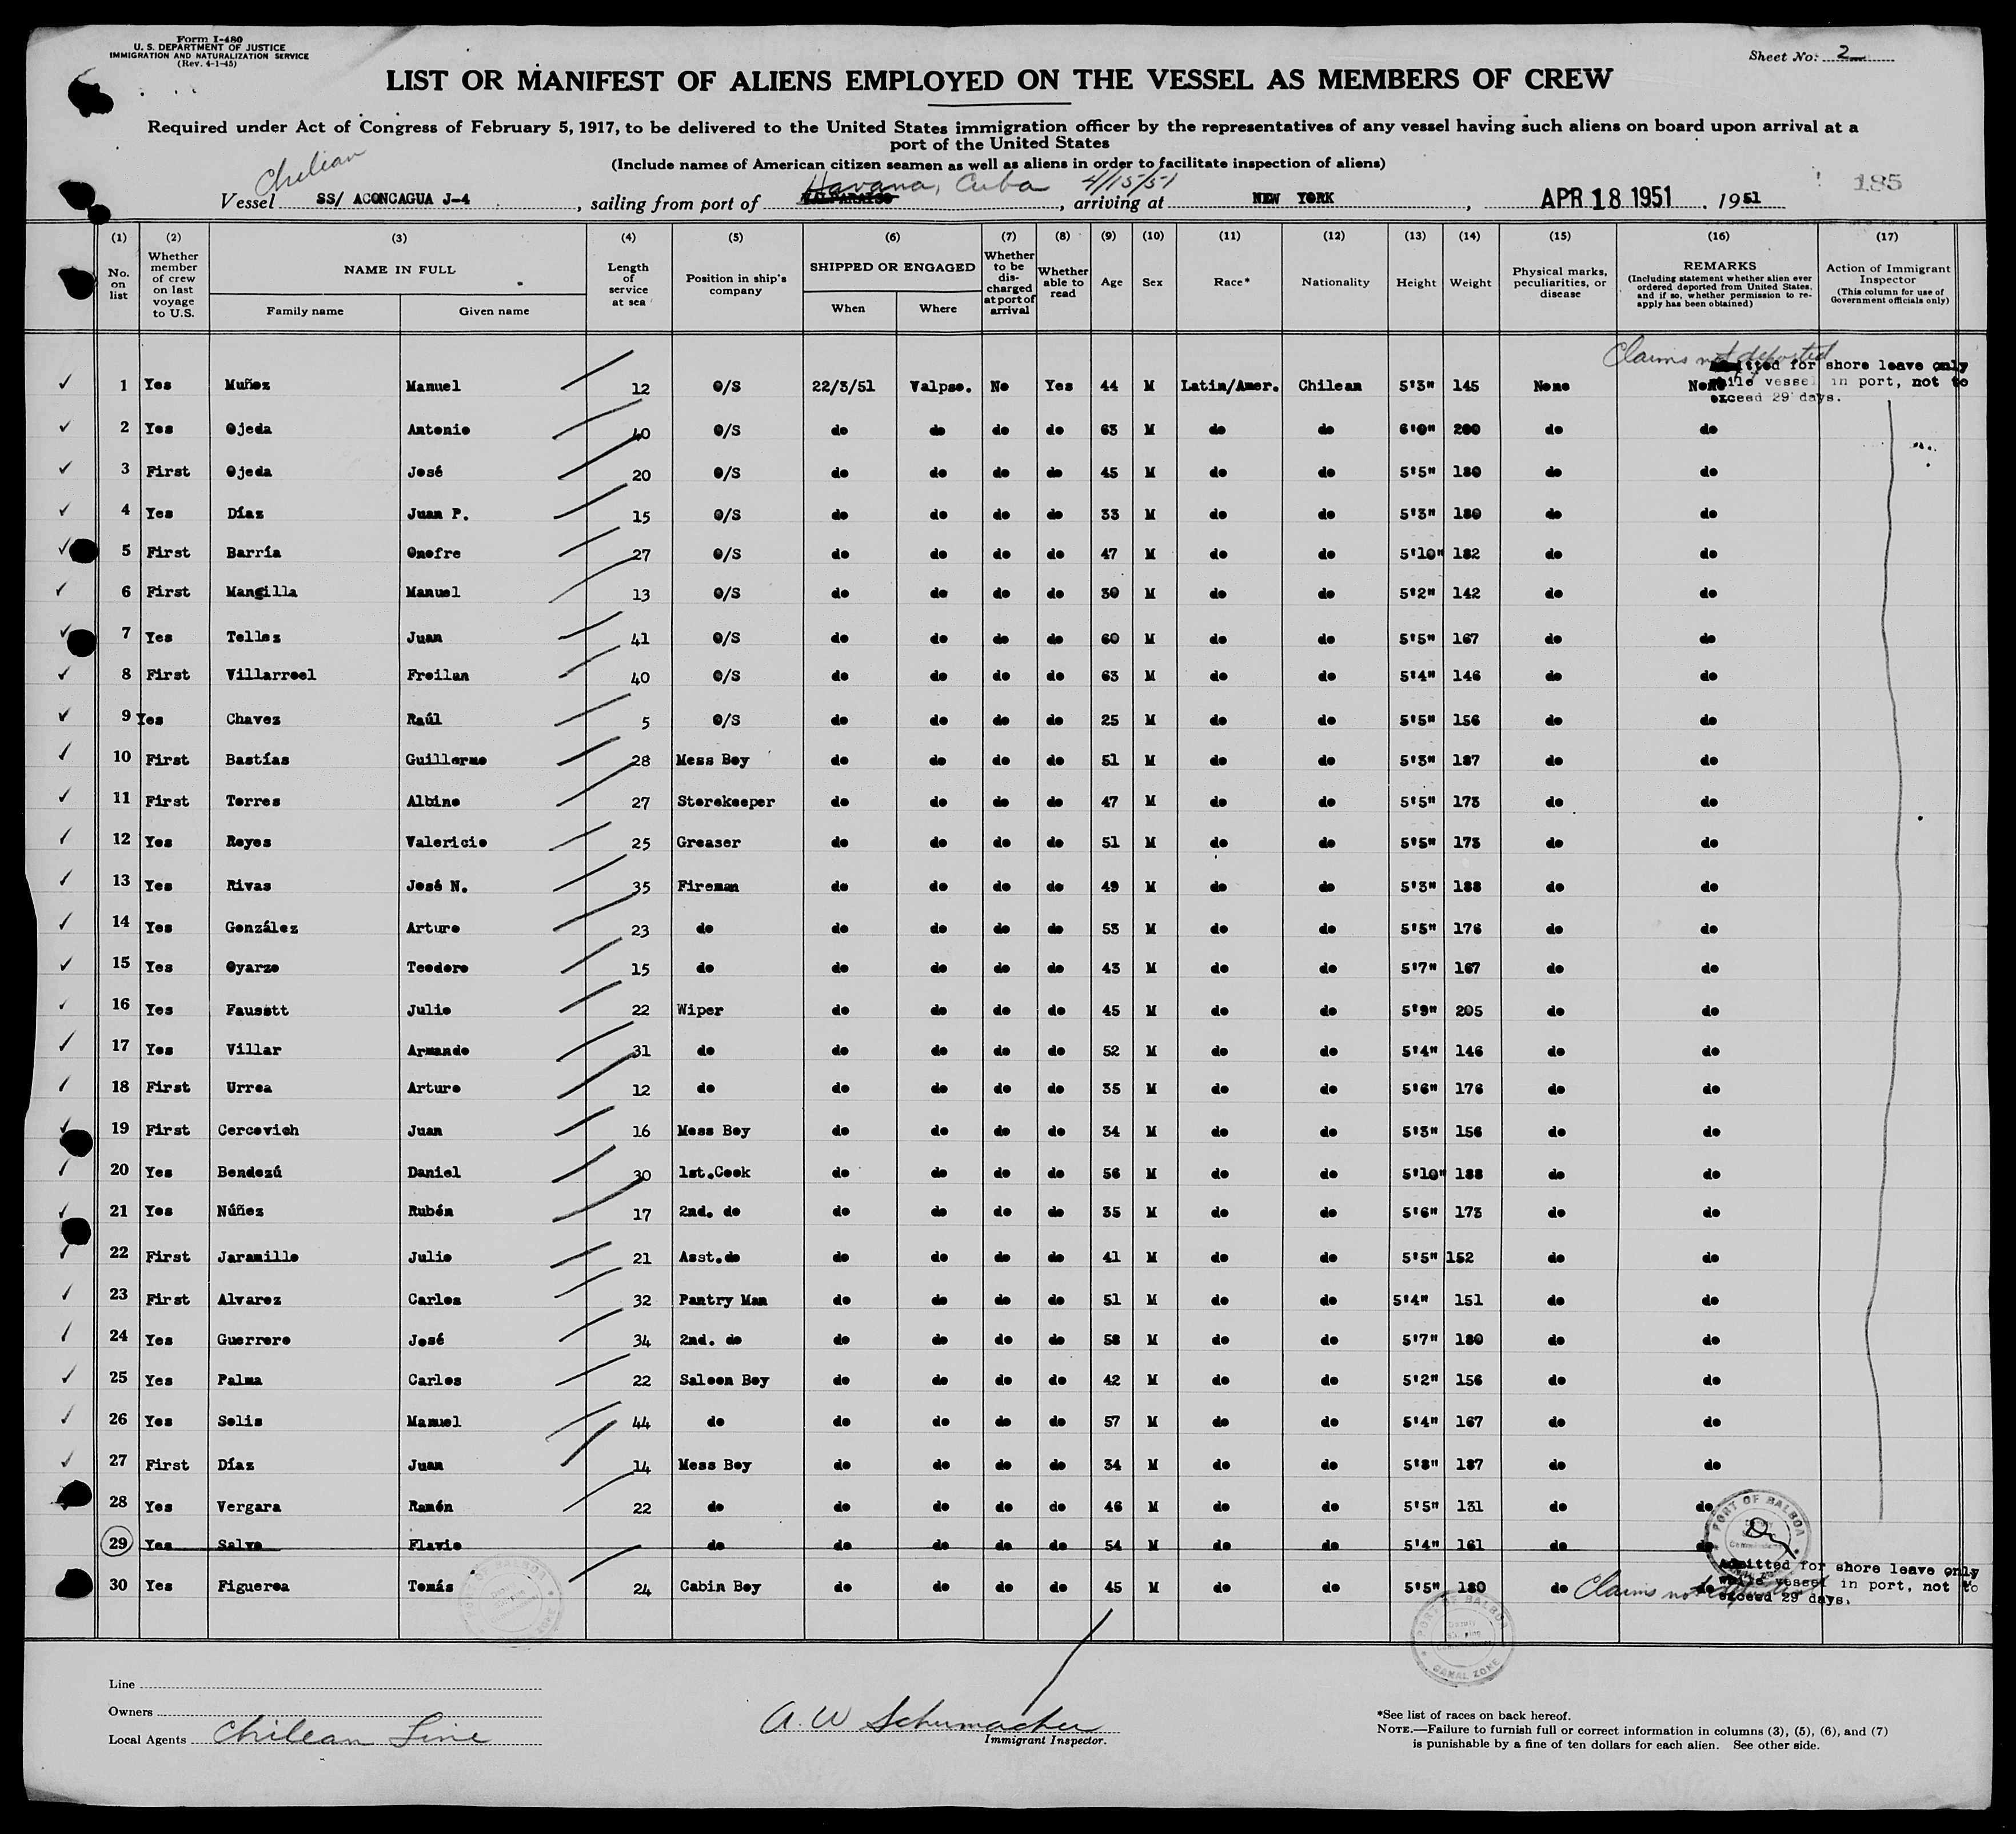 Form I-480
U. S. DEPARTMENT OF JUSTICE
IMMIGRATION AND NATURALIZATION SERVICE
(Rev. 4-1-45)
Sheet No. 2
LIST OR MANIFEST OF ALIENS EMPLOYED ON THE VESSEL AS MEMBERS OF CREW
Required under Act of Congress of February 5, 1917, to be delivered to the United States immigration officer by the representatives of any vessel having such aliens on board upon arrival at a
port of the United States
(Include names of American citizen seamen as well as aliens in order to facilitate inspection of aliens)
Chilean
Havana, Cuba 4/15/51
185
Vessel SS/ ACONCAGUA J-4, sailing from port of VALPARAISO, arriving at NEW YORK, APR 18 1951, 1951
(1) (2) (3) (4) (5) (6) (7) (8) (9) (10) (11) (12) (13) (14) (15) (16) (17)
No. on list
Whether member of crew on last voyage to U.S.
NAME IN FULL
Family name
Given name
Length of service at sea
Position in ship's company
SHIPPED OR ENGAGED
When
Where
Whether to be discharged at port of arrival
Whether able to read
Age
Sex
Race*
Nationality
Height
Weight
Physical marks, peculiarities, or disease
REMARKS
(Including statement whether alien ever ordered deported from United States, and if so, whether permission to re-apply has been obtained)
Action of Immigrant Inspector
(This column for use of Government officials only)
Claims not deported
Admitted for shore leave only
while vessel in port, not to
exceed 29 days.
1 Yes Muñez Manuel 12 O/S 22/3/51 Valpso. No Yes 44 M Latin/Amer. Chilean 5'3" 145 None None
2 Yes Ojeda Antonio 40 O/S do do do do 63 M do do 6'0" 200 do do
3 First Ojeda José 20 O/S do do do do 45 M do do 5'5" 180 do do
4 Yes Díaz Juan P. 15 O/S do do do do 33 M do do 5'3" 180 do do
5 First Barría Onofre 27 O/S do do do do 47 M do do 5'10" 182 do do
6 First Mancilla Manuel 13 O/S do do do do 30 M do do 5'2" 142 do do
7 Yes Tellez Juan 41 O/S do do do do 60 M do do 5'5" 167 do do
8 First Villarroel Froilan 40 O/S do do do do 63 M do do 5'4" 146 do do
9 Yes Chavez Raúl 5 O/S do do do do 25 M do do 5'5" 156 do do
10 First Bastías Guillermo 28 Mess Boy do do do do 51 M do do 5'3" 187 do do
11 First Torres Albino 27 Storekeeper do do do do 47 M do do 5'5" 173 do do
12 Yes Reyes Valericio 25 Greaser do do do do 51 M do do 5'5" 173 do do
13 Yes Rivas José N. 35 Fireman do do do do 49 M do do 5'3" 188 do do
14 Yes González Arturo 23 do do do do do 53 M do do 5'5" 176 do do
15 Yes Oyarzo Teodoro 15 do do do do do 43 M do do 5'7" 167 do do
16 Yes Fausstt Julio 22 Wiper do do do do 45 M do do 5'9" 205 do do
17 Yes Villar Armando 31 do do do do do 52 M do do 5'4" 146 do do
18 First Urrea Arturo 12 do do do do do 35 M do do 5'6" 176 do do
19 First Cercovich Juan 16 Mess Boy do do do do 34 M do do 5'3" 156 do do
20 Yes Bendezú Daniel 30 1st.Cook do do do do 56 M do do 5'10" 188 do do
21 Yes Núñez Rubén 17 2nd. do do do do do 35 M do do 5'6" 173 do do
22 First Jaramillo Julio 21 Asst.do do do do do 41 M do do 5'5" 152 do do
23 First Alvarez Carlos 32 Pantry Man do do do do 51 M do do 5'4" 151 do do
24 Yes Guerrero José 34 2nd. do do do do do 58 M do do 5'7" 180 do do
25 Yes Palma Carlos 22 Saloon Boy do do do do 42 M do do 5'2" 156 do do
26 Yes Solis Manuel 44 do do do do do 57 M do do 5'4" 167 do do
27 First Díaz Juan 14 Mess Boy do do do do 34 M do do 5'8" 187 do do
28 Yes Vergara Ramón 22 do do do do do 46 M do do 5'5" 131 do do
29 Yes Salvo Flavio do do do do do 54 M do do 5'4" 161 do do
30 Yes Figueroa Tomás 24 Cabin Boy do do do do 45 M do do 5'5" 180 do do
PORT OF BALBOA
Claims not deported
Admitted for shore leave only
while vessel in port, not to
exceed 29 days.
PORT OF BALBOA
CANAL ZONE
Line
Owners
Local Agents Chilean Line
A. W. Schumacher
Immigrant Inspector.
*See list of races on back hereof.
NOTE.—Failure to furnish full or correct information in columns (3), (5), (6), and (7)
is punishable by a fine of ten dollars for each alien. See other side.